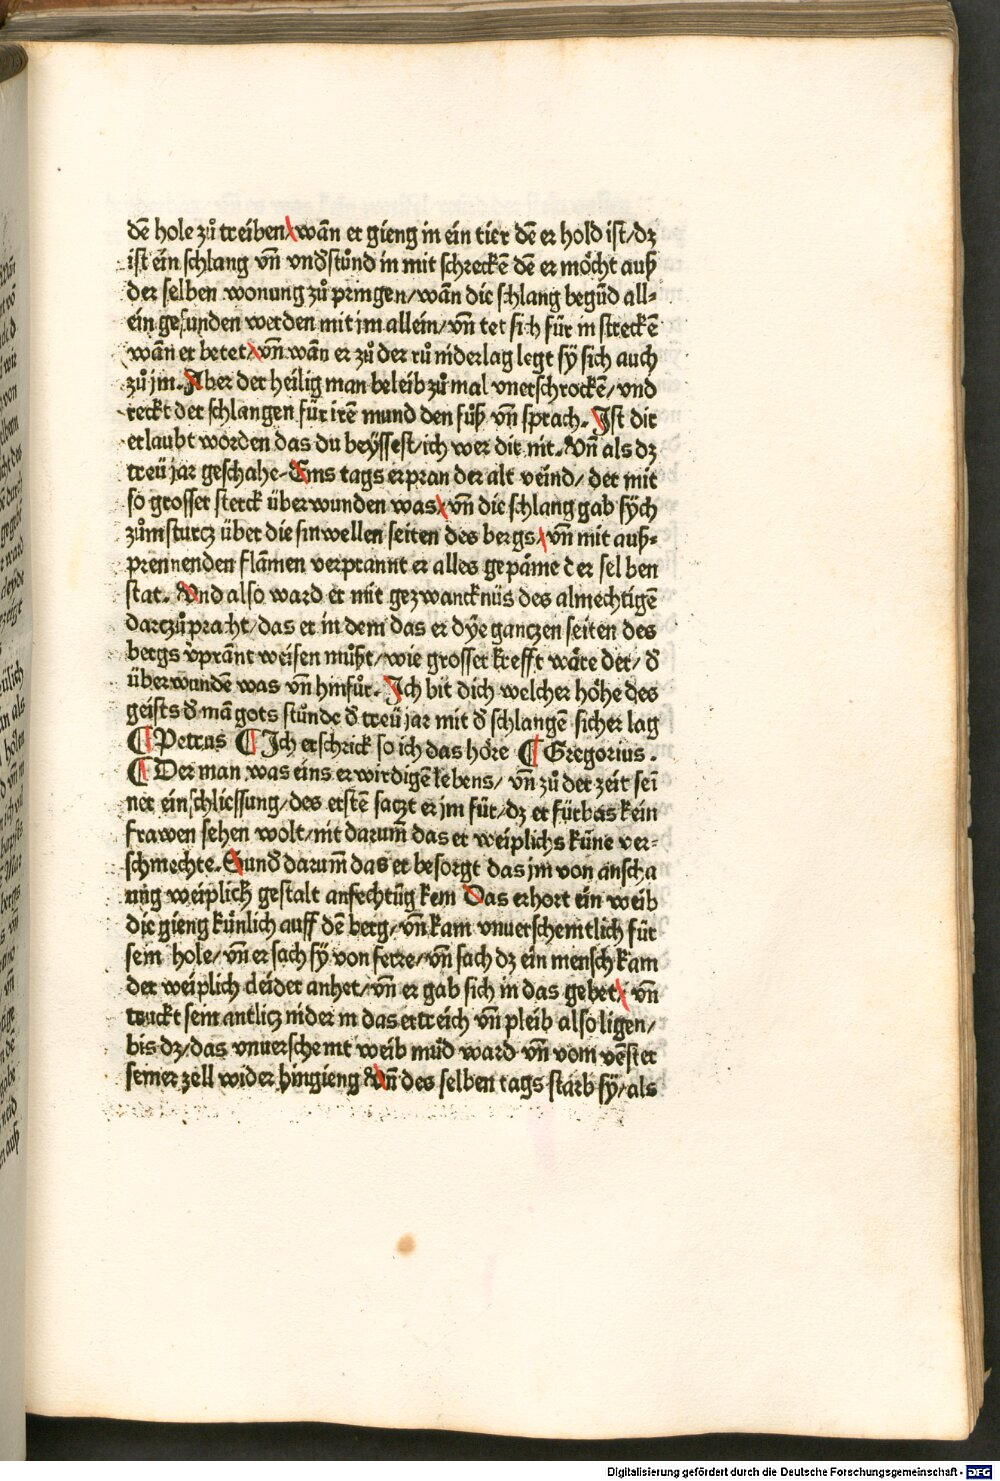 dē hole zů treiben/wān er gieng in ein tier dē er hold ist/dz
ist ein schlang vn̄ vnd̄stůnd in mit schreckē dē er möcht auß
der selben wonung zů pringen/wān die schlang begūd all⸗
ein gefunden werden mit jm allein/vn̄ tet sich für in streckē
wān er betet/vn̄ wān er zů der rů niderlag legt sÿ sich auch
zů jm. Aber der heilig man beleib zů mal vnerschrockē/vnd
reckt der schlangen für irē mund den fůß vn̄ sprach. Ist dir
erlaubt worden das du beÿssest/ich wer dir nit. Vn̄ als dz
treü jar geschahe. Eins tags erpran der alt veind/ der mit
so grosser sterck überwunden was/vn̄ die schlang gab sÿch
zůmsturcz über die sinwellen seiten des bergs/vn̄ mit auß⸗
prennenden flāmen verprannt er alles gepäme der selben
stat. Vnd also ward er mit gezwancknüs des almechtigē
darczůpracht/das er in dem das er dÿe ganczen seiten des
bergs v̄prānt weisen můßt/wie grosser krefft wäre der/ d̄
überwundē was vn̄ hinfůr. Ich bit dich welcher höhe des
geists d̄ mā gots stůnde d̄ treü jar mit d̄ schlangē sicher lag
¶ Petrus ¶ Ich erschrick so ich das höre ¶ Gregorius.
¶ Der man was eins erwirdigē lebens/ vn̄ zů der zeit sei
ner einschliessung/des erstē saczt er jm für/dz er fürbas kein
frawen sehen wolt/nit darum̄ das er weiplichs kūne ver⸗
schmechte. Sund̄ darum̄ das er besorgt das jm von anscha
ung weiplich gestalt anfechtūg kem Das erhort ein weib
die gieng künlich auff dē berg/vn̄ kam vnuerschemtlich für
sein hole/vn̄ er sach sÿ von ferre/vn̄ sach dz ein mensch kam
der weiplich cleider anhet/vn̄ er gab sich in das gebet/ vn̄
truckt sein antlicz nider in das ertreich vn̄ pleib also ligen/
bis dz/das vnuerschemt weib müd ward vn̄ vom vēster
seiner zell wider hingieng Vn̄ des selben tags starb sÿ/als
Digitalisierung gefördert durch die Deutsche Forschungsgemeinschaft - DFG